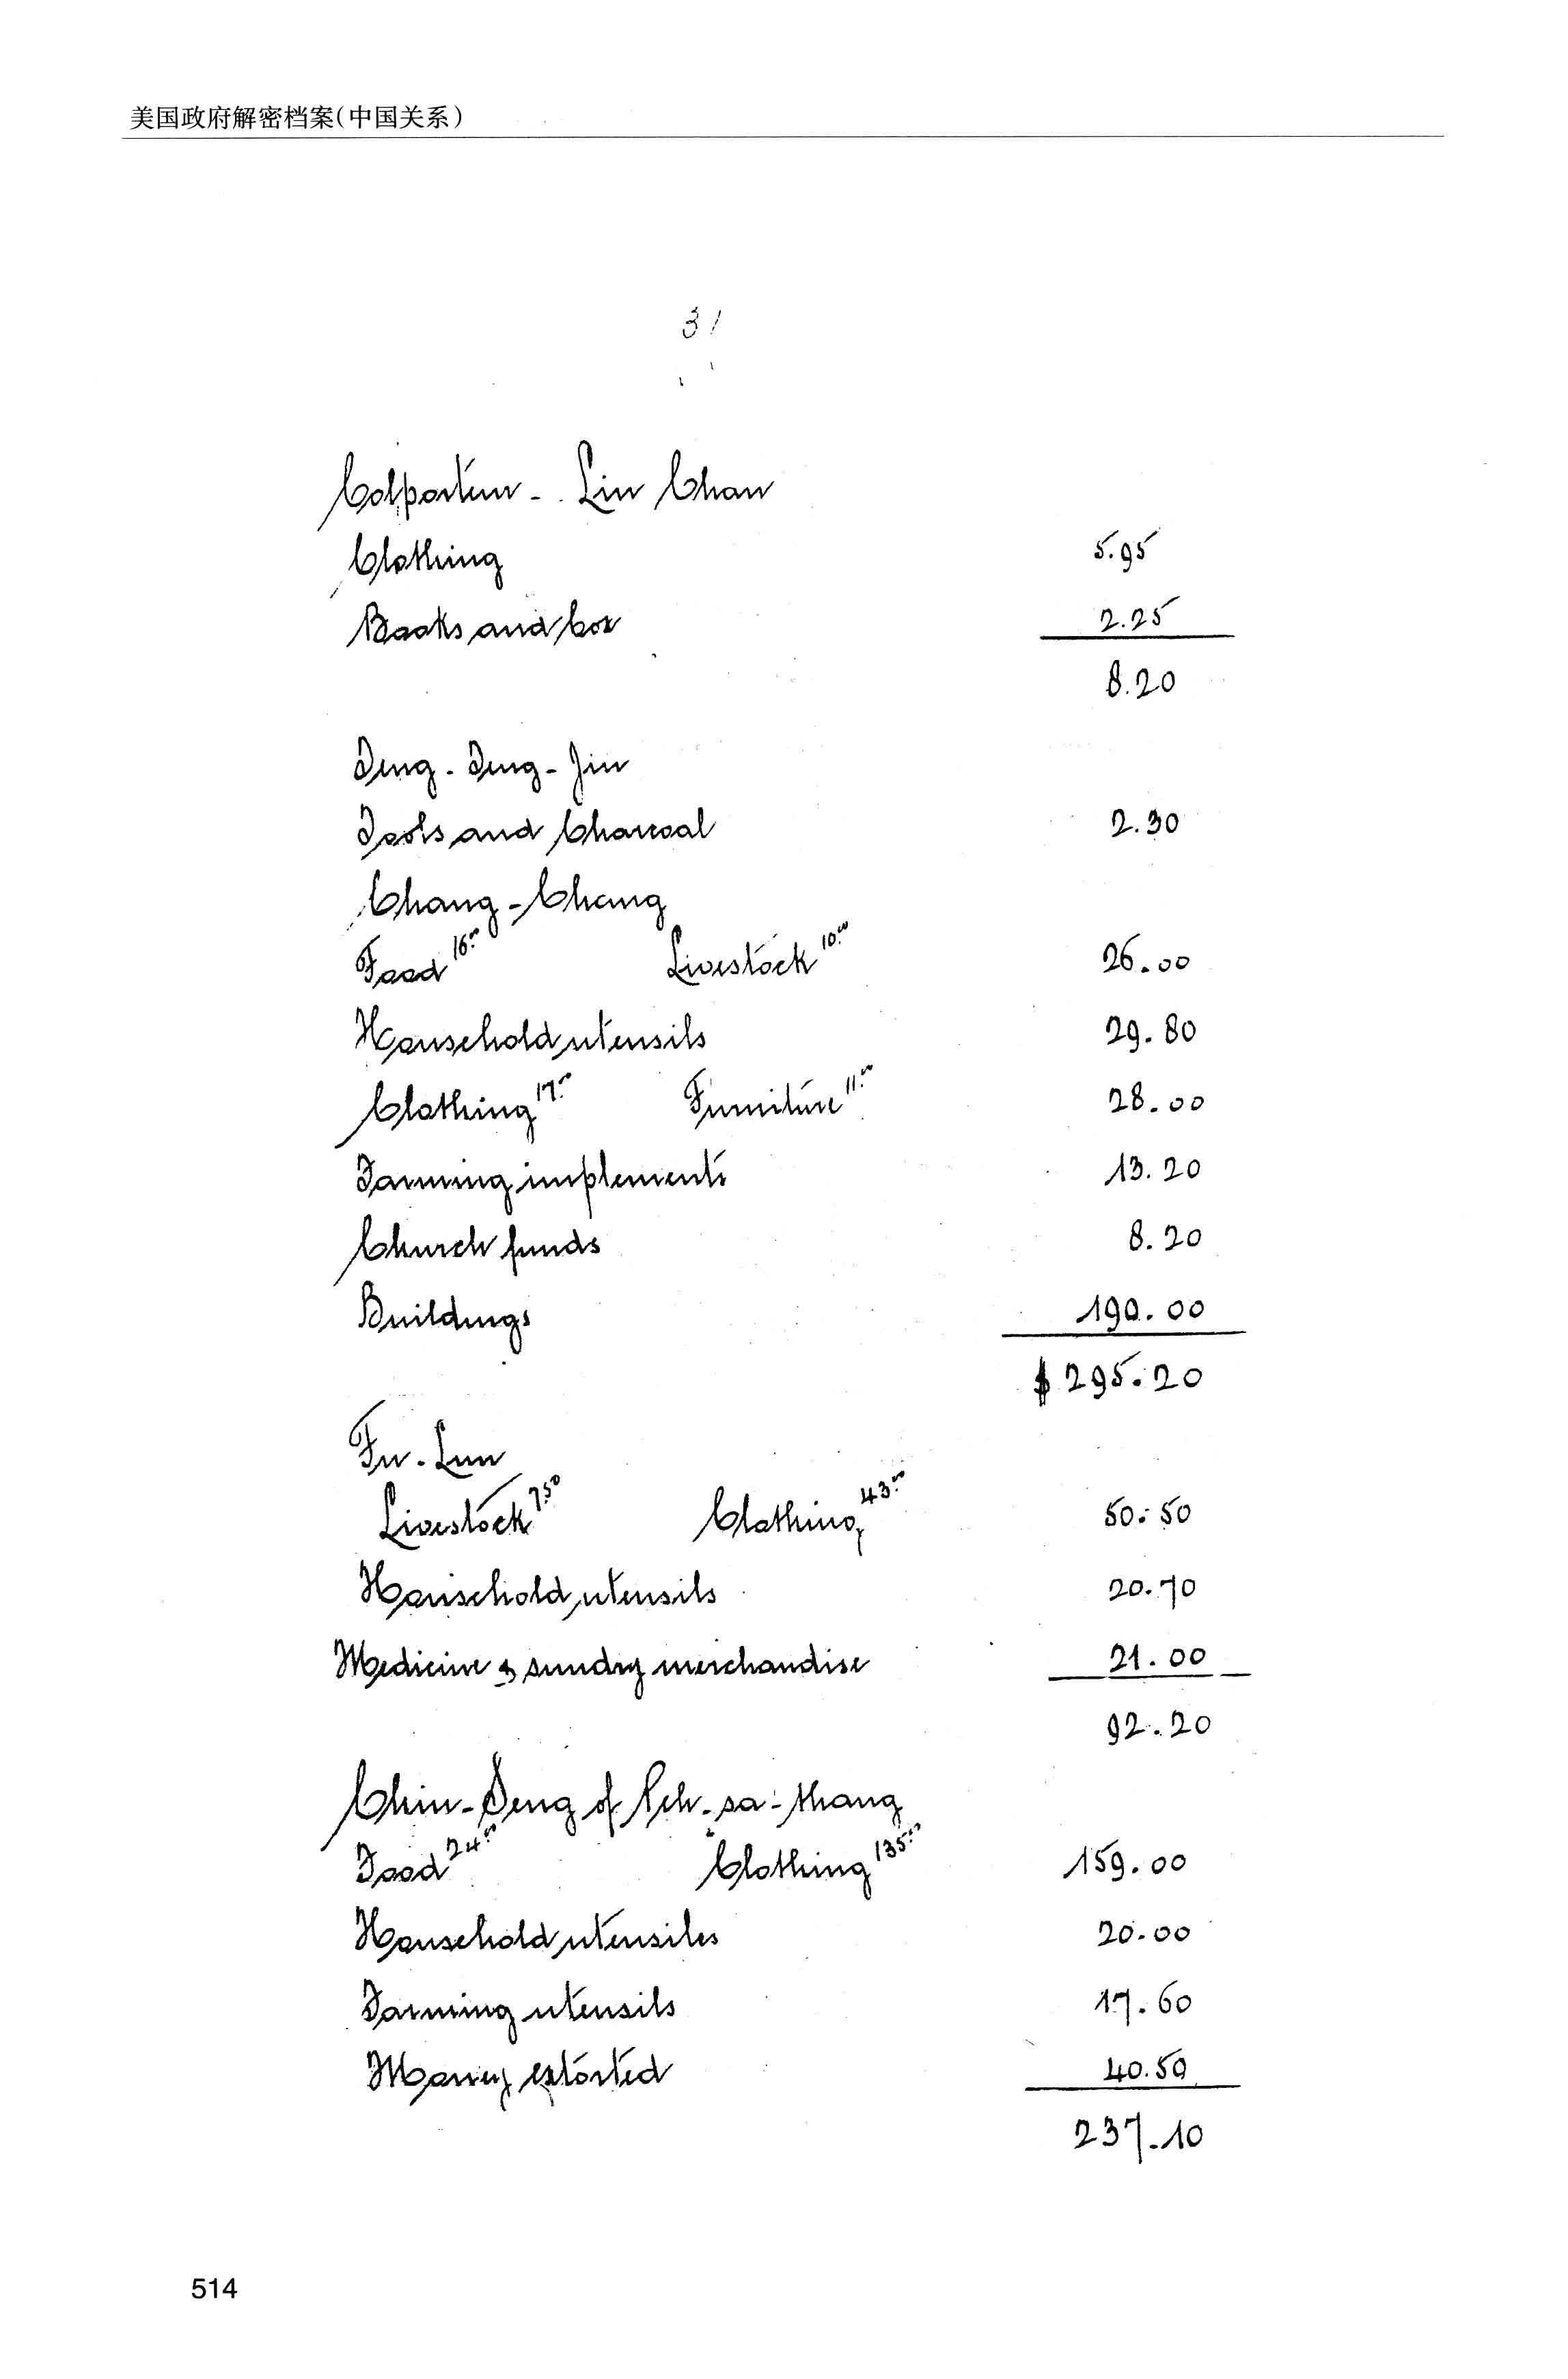 美国政府解密档案(中国关系)
31
Colporteur - Lin Chan
Clothing 5.95
Books and box 2.25
8.20
Deng-Deng-Jin
Tools and Charcoal 2.30
Chang-Chang
Food 16.00 Livestock 10.00 26.00
Household utensils 29.80
Clothing 17.00 Furniture 11.00 28.00
Farming implements 13.20
Church funds 8.20
Buildings 190.00
$295.20
Fu-Lun
Livestock 7.50 Clothing 43.00 50.50
Household utensils 20.70
Medicine & sundry merchandise 21.00
92.20
Chin-Seng of Peh-sa-thang
Food 24.00 Clothing 135.00 159.00
Household utensiles 20.00
Farming utensils 17.60
Money extorted 40.50
237.10
514